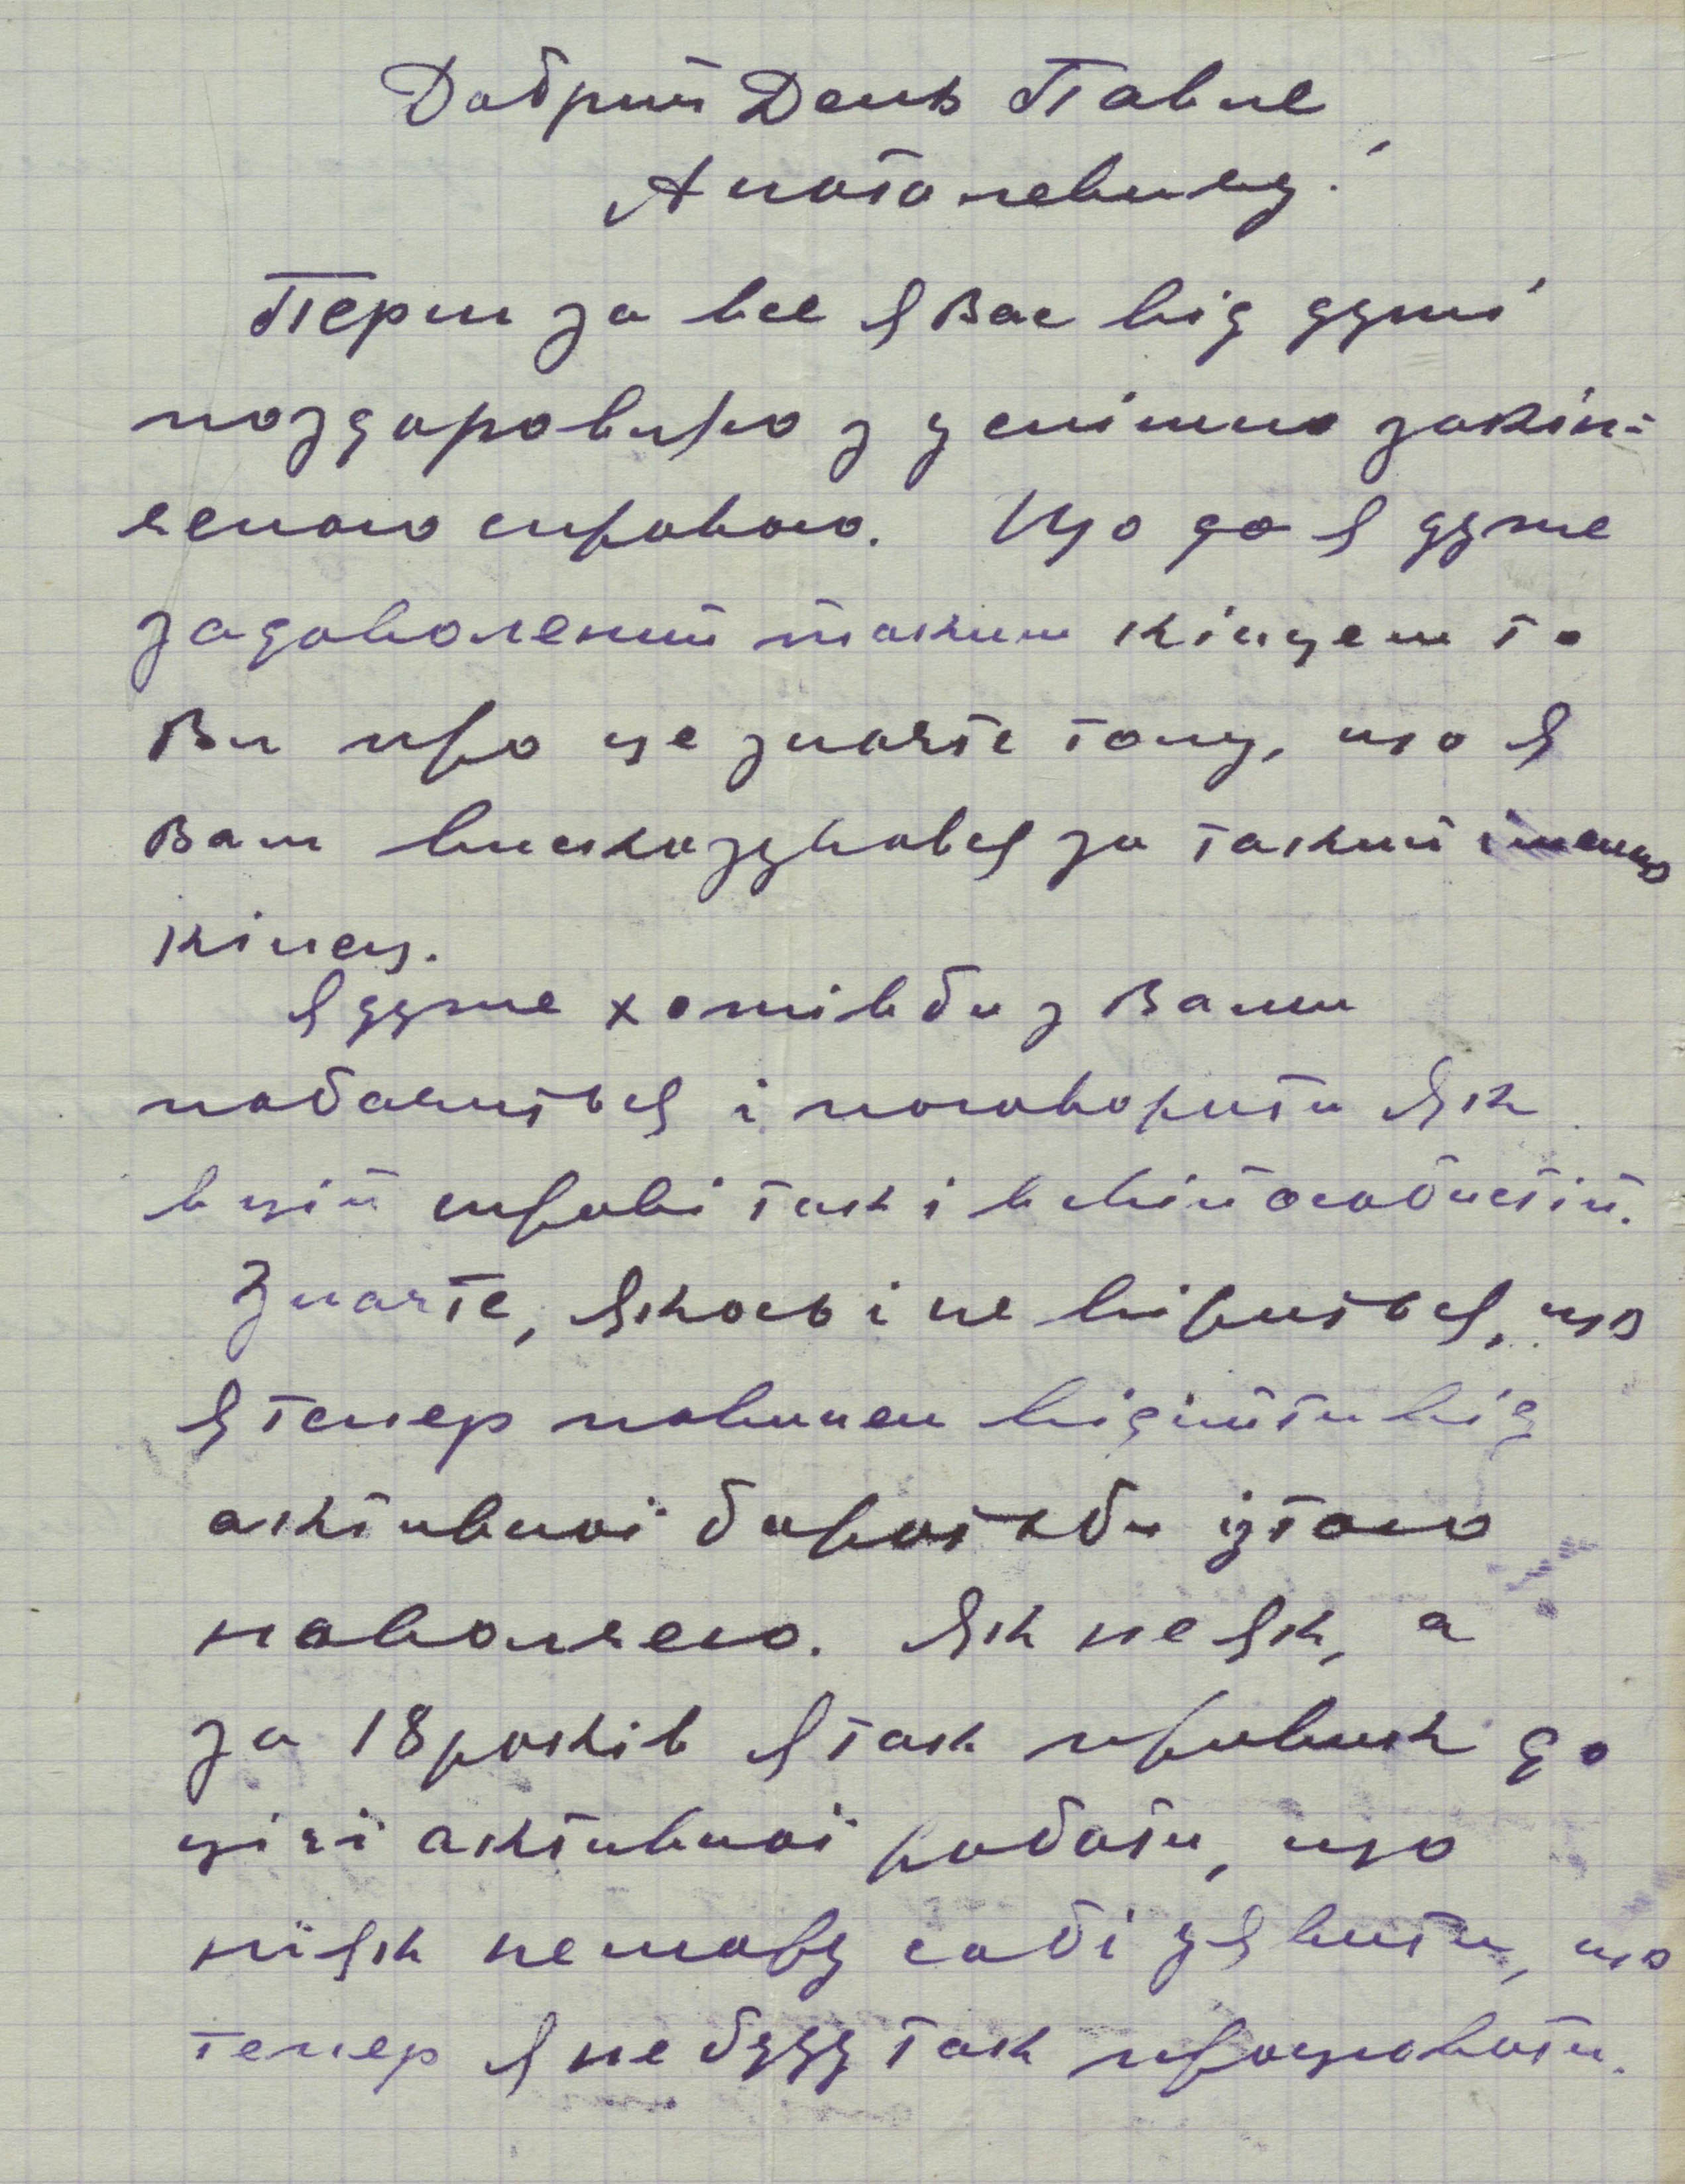 Добрий День Павле
Анатолевичу!
Перш за все я Вас від душі
поздаровляю з успішно закін-
ченою справою. Що до я дуже
задоволений таким кінцем то
Ви про це знаєте тому, що я
Вам висказувався за такий іменно
кінец.
Я дуже хотів би з Вами
побачиться і поговорити як
в цій справі так і в свій особистій.
Знаєте, якось і не віриться, що
я тепер повинен відійти від
активної боротьби із тою
наволочею. Як не як, а
за 18 років я так привик до
цієї активної работи, що
ніяк не можу собі уявити, що
тепер я не буду так працювати.